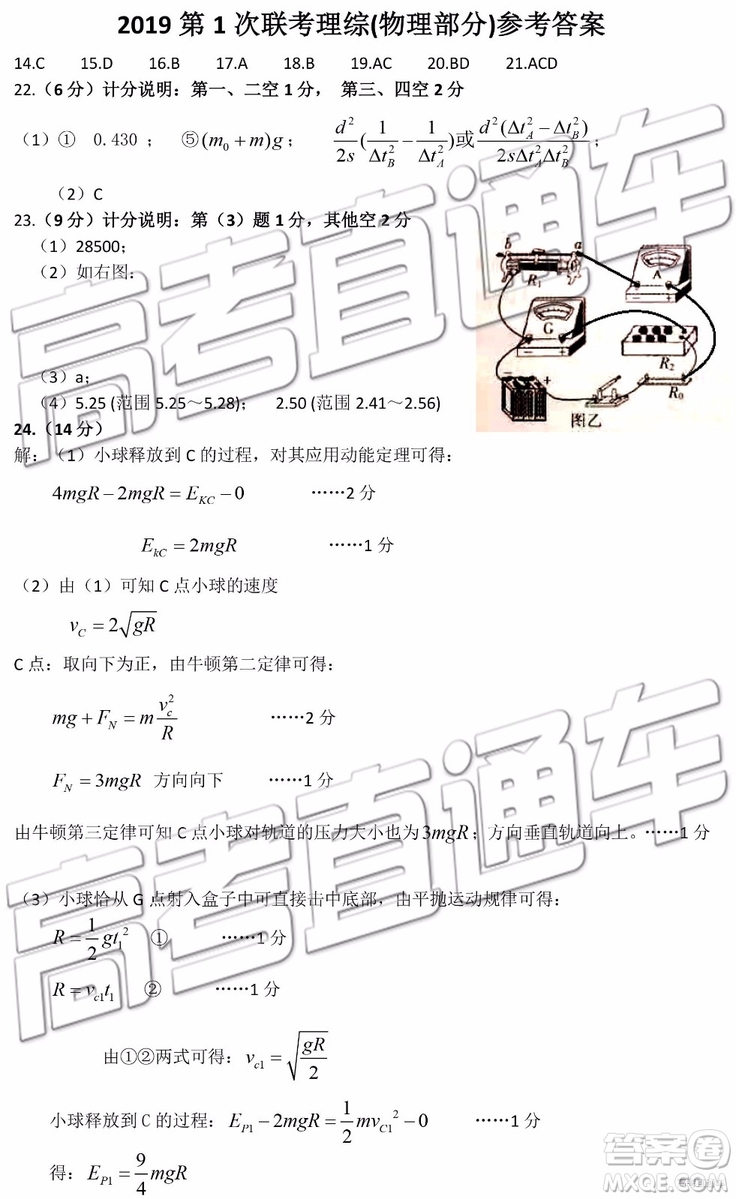 2019 第 1 次联考理综(物理部分)参考答案
14.C 15.D 16.B 17.A 18.B 19.AC 20.BD 21.ACD
22.（6 分）计分说明：第一、二空 1 分， 第三、四空 2 分
（1）① 0.430 ； ⑤(m₀+m)g； d²/2s(1/Δt_B² − 1/Δt_A²)或 d²(Δt_A² − Δt_B²)/2sΔt_A²Δt_B²；
（2）C
23.（9 分）计分说明：第（3）题 1 分，其他空 2 分
（1）28500；
（2）如右图：
b a R₁ A
G R₂
R₀
图乙
（3）a；
（4）5.25 (范围 5.25～5.28)； 2.50 (范围 2.41～2.56)
24.（14 分）
解：（1）小球释放到 C 的过程，对其应用动能定理可得：
4mgR−2mgR=E_KC−0 ……2 分
E_kC=2mgR ……1 分
（2）由（1）可知 C 点小球的速度
v_C=2√gR
C 点：取向下为正，由牛顿第二定律可得：
mg+F_N=m v_c²/R ……2 分
F_N=3mgR 方向向下 ……1 分
由牛顿第三定律可知 C 点小球对轨道的压力大小也为3mgR；方向垂直轨道向上。……1 分
（3）小球恰从 G 点射入盒子中可直接击中底部，由平抛运动规律可得：
R=1/2 gt₁² ① ……1 分
R=v_c1t₁ ② ……1 分
由①②两式可得：v_c1=√(gR/2)
小球释放到 C 的过程：E_P1−2mgR=1/2 mv_C1²−0 ……1 分
得：E_P1=9/4 mgR
高考直通车
高考直通车
答案圈